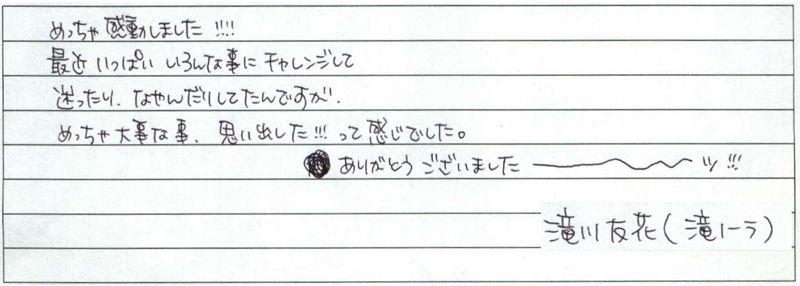 めっちゃ感動しました!!!!
最近いっぱいいろんな事にチャレンジして
迷ったり、なやんだりしてたんですが、
めっちゃ大事な事、思い出した!!!って感じでした。
ありがとうございました〜ッ!!!
滝川友花(滝ーラ)